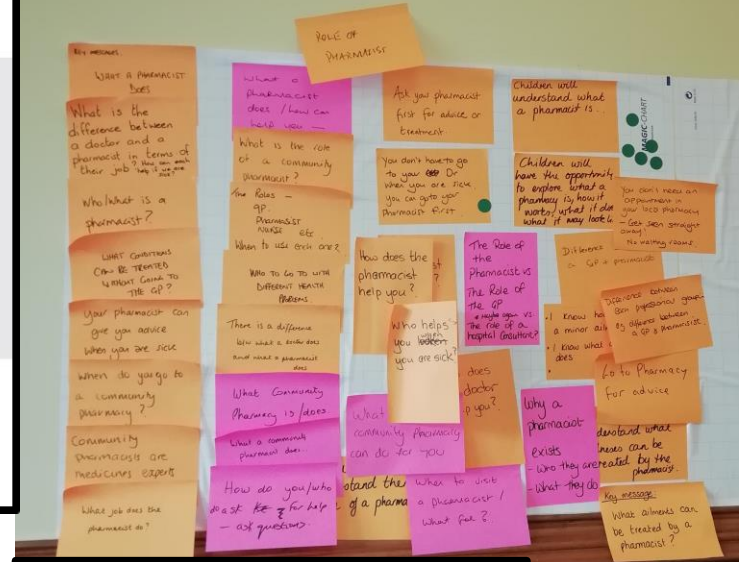 ROLE OF
PHARMACIST
KEY MESSAGES.
WHAT A PHARMACIST
DOES
What is the
difference between
a doctor and a
pharmacist in terms of
their job? How can each
help if we are
sick?
Who/What is a
pharmacist?
WHAT CONDITIONS
CAN BE TREATED
WITHOUT GOING TO
THE GP?
Your pharmacist can
give you advice
when you are sick
When do you go to
a community
pharmacy?
Community
pharmacists are
medicines experts
What job does the
pharmacist do?
What a
pharmacist
does / how can
help you —
What is the role
of a community
pharmacist?
The Roles —
GP?
PHARMACIST
NURSE etc
When to use each one?
WHO TO GO TO WITH
DIFFERENT HEALTH
PROBLEMS
There is a difference
b/w what a doctor does
and what a pharmacist
does
What Community
Pharmacy is/does
What a community
pharmacist does..
How do you/who
do ask for help
— ask questions.
Ask your pharmacist
first for advice or
treatment
You don't have to go
to your Dr
When you are sick
you can go to your
pharmacist first
How does the
pharmacist
help you?
Who helps
you when
you are sick?
does
doctor
you?
What
community pharmacy
can do for you
stand the
of a pharma
When to visit
a pharmacist /
What for?
The Role of
the
Pharmacist vs
The Role of
the GP
vs
The role of a
hospital Consultant?
Children will
understand what
a pharmacist is...
Children will
have the opportunity
to explore what a
pharmacy is, how it
works, what it does
what it may look li
MAGIC-CHART
You don't need an
appointment in
your local pharmacy
– Get seen straight
away!
No waiting rooms.
Difference
a GP + pharmacist
Difference between
each professional group
Eg difference between
a GP & pharmacist.
• I know ho
a minor ail
• I know what a
does
Go to Pharmacy
for advice
Why a
pharmacist
exists
– Who they are
– What they do
derstand what
nesses can be
treated by the
pharmacist.
Key message:
What ailments can
be treated by a
pharmacist?